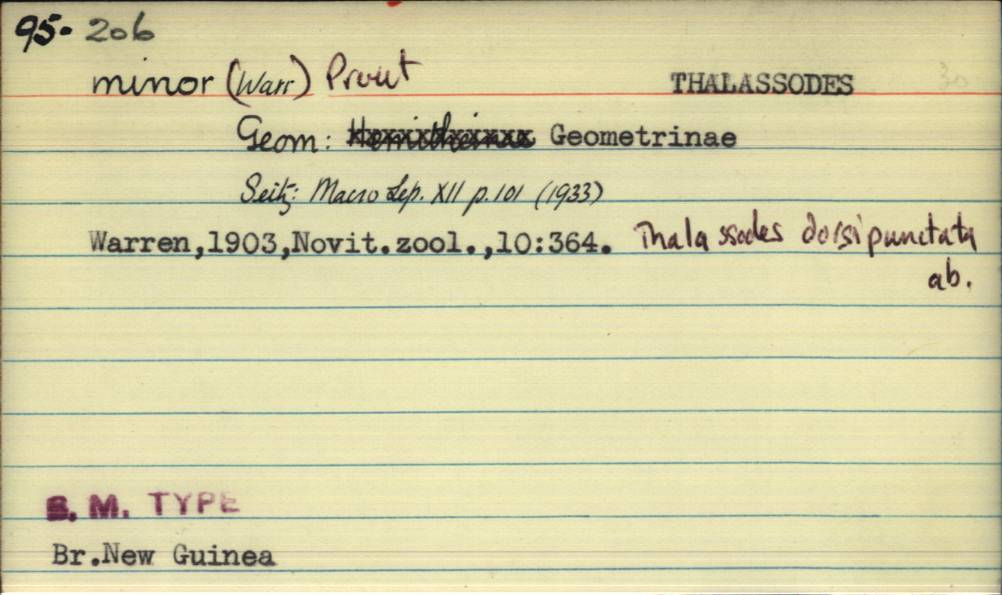 95-206
minor (Warr) Prout THALASSODES
Geom: Geometrinae
Seitz: Macro Lep. XII p.101 (1933)
Warren,1903,Novit.zool.,10:364. Thalassodes dorsipunctata
ab.
B. M. TYPE
Br.New Guinea